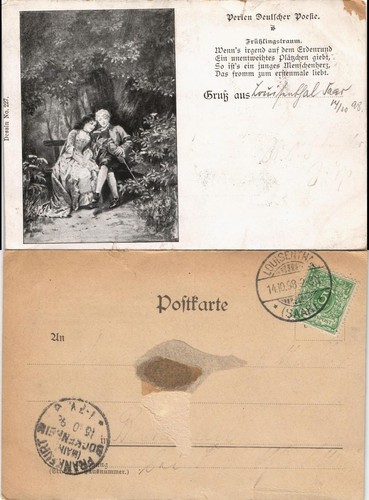 Perlen Deutscher Poesie.
Frühlingstraum.
Wenn's irgend auf dem Erdenrund
Ein unentweihtes Plätzchen giebt,
So ist's ein junges Menschenherz,
Das fromm zum erstenmale liebt.
Gruß aus Louisenthal Saar
14/10 98.
Dessin No. 227.
LOUISENTHAL
14.10.98
(SAAR)
Postkarte
An
in
FRANKFURT
(MAIN)
BOCKENHEIM